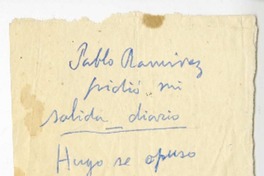 Pablo Ramirez
pidió mi
salida diario
Hugo se opuso